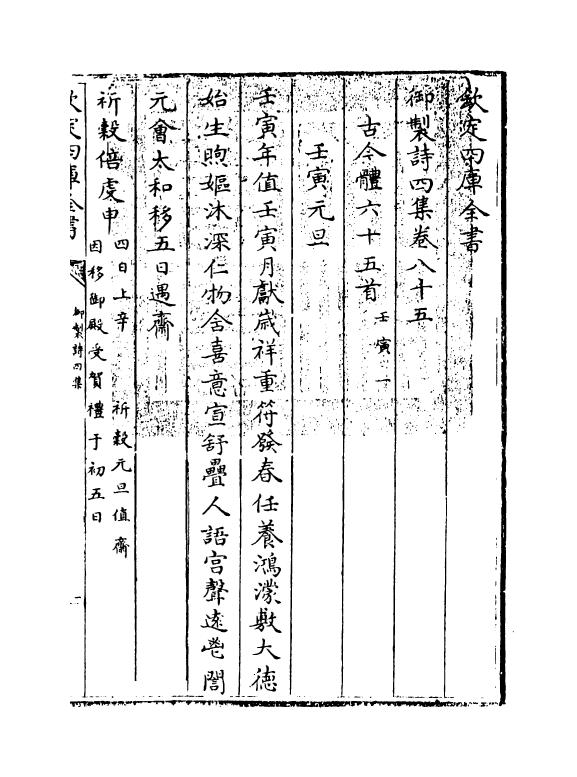 欽定四庫全書
御製詩四集卷八十五
古今體六十五首 壬寅一
壬寅元旦
壬寅年值壬寅月獻歲祥重符發春任養鴻濛敷大德
始生煦嫗沐深仁物含喜意宣舒疊人語宫聲遠邇誾
元會太和移五日遇齋
祈穀倍虔申 四日上辛 祈穀元旦值齋
因移御殿受賀禮于初五日
欽定四庫全書
御製詩四集
一